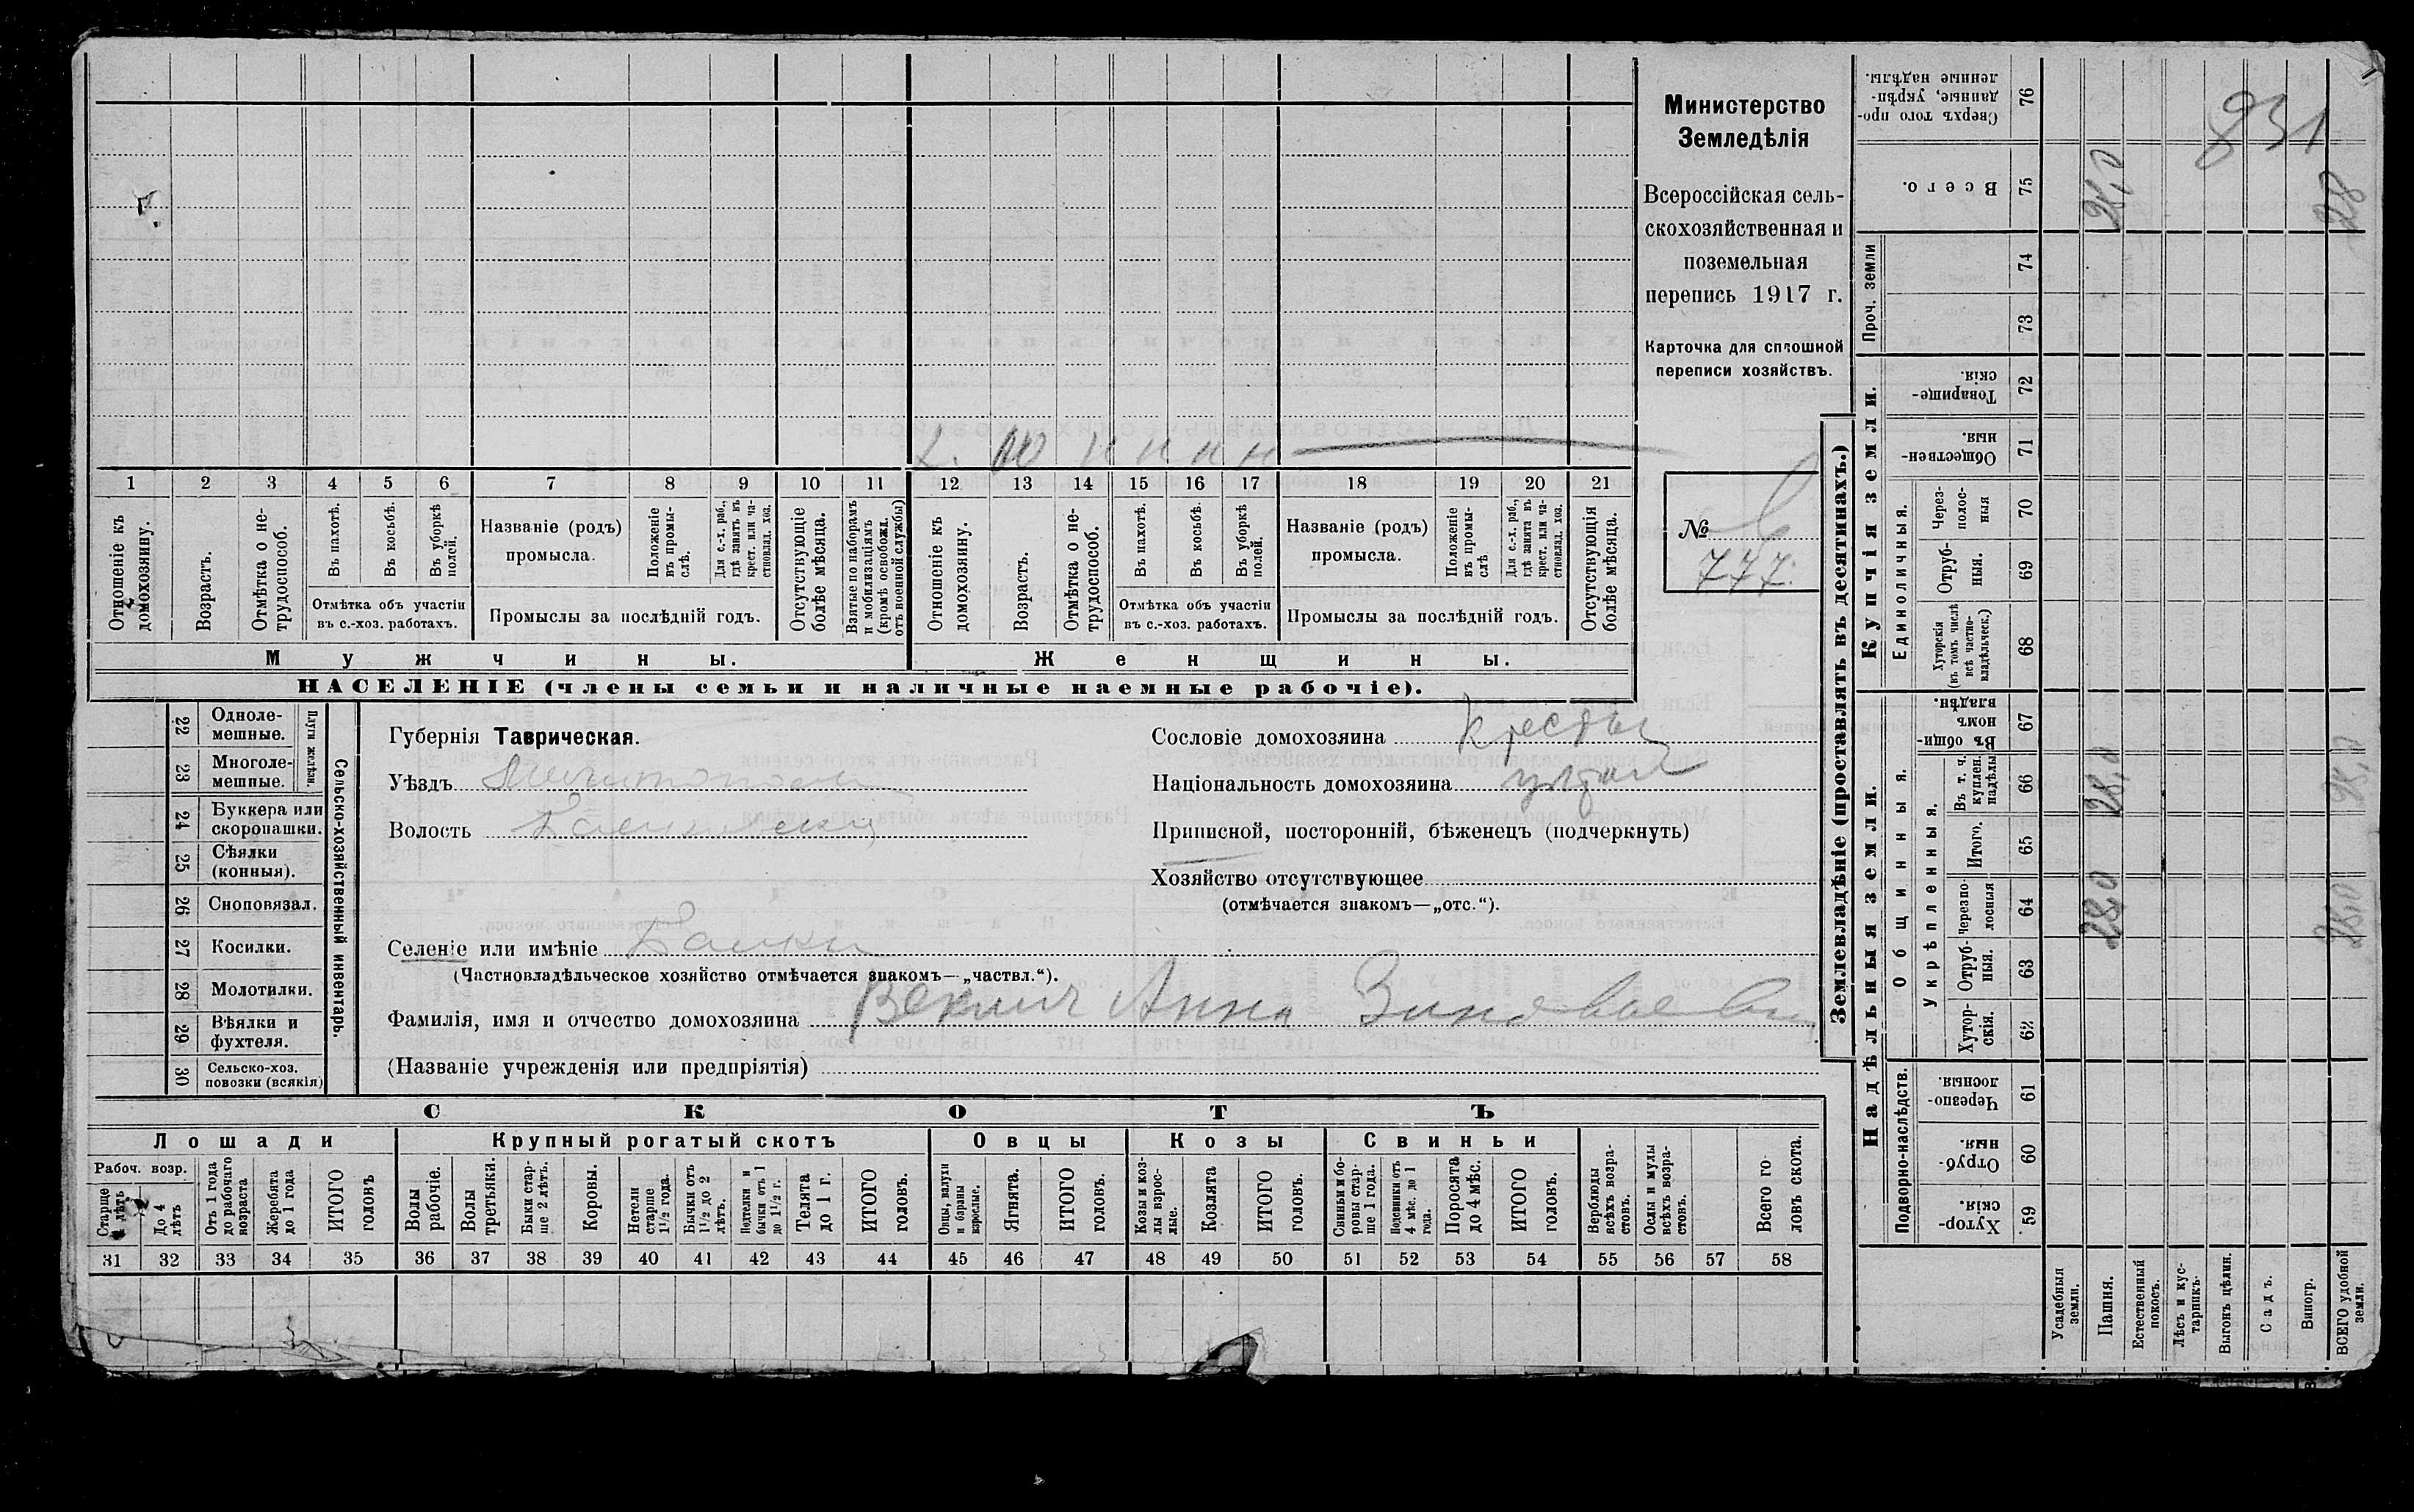 1 2 3 4 5 6 7 8 9 10 11 12 13 14 15 16 17 18 19 20 21
Отношеніе къ домохозяину.
Возрастъ.
Отмѣтка о не-
трудоспособ.
Въ пахотѣ.
Въ косьбѣ.
Въ уборкѣ
полей.
Отмѣтка объ участіи
въ с.-хоз. работахъ.
Названіе (родъ)
промысла.
Положеніе
въ промы-
слѣ.
Для с.-х. раб.,
гдѣ занятъ въ
крест. или ча-
стновлад. хоз.
Промыслы за послѣдній годъ.
Отсутствующіе
болѣе мѣсяца.
Взятые по наборамъ
и мобилизаціямъ
(кромѣ освобожд.
отъ военной службы)
Отношеніе къ
домохозяину.
Возрастъ.
Отмѣтка о не-
трудоспособ.
Въ пахотѣ.
Въ косьбѣ.
Въ уборкѣ
полей.
Отмѣтка объ участіи
въ с.-хоз. работахъ.
Названіе (родъ)
промысла.
Положеніе
въ промы-
слѣ
Для с.-х. раб.,
гдѣ занята въ
крест. или ча-
стновлад. хоз.
Промыслы за послѣдній годъ.
Отсутствующія
болѣе мѣсяца.
Мужчины.
Женщины.
НАСЕЛЕНІЕ (члены семьи и наличные наемные рабочіе).
Министерство
Земледѣлія
Всероссійская сель-
скохозяйственная и
поземельная
перепись 1917 г.
Карточка для сплошной
переписи хозяйствъ.
№
777.
22 Одноле-
мешные.
23 Многоле-
мешные.
Плуги желѣзн.
24 Буккера или
скоропашки.
25 Сѣялки
(конныя).
26 Сноповязал.
27 Косилки.
28 Молотилки.
29 Вѣялки и
фухтеля.
30 Сельско-хоз.
повозки (всякія)
Сельско-хозяйственный инвентарь.
Губернія Таврическая.
Уѣздъ
Волость
Сословіе домохозяина
Національность домохозяина
Приписной, посторонній, бѣженецъ (подчеркнуть)
Хозяйство отсутствующее
(отмѣчается знакомъ—„отс.“).
Селеніе или имѣніе Балки
(Частновладѣльческое хозяйство отмѣчается знакомъ—„частвл.“).
Фамилія, имя и отчество домохозяина Веклич Анна
(Названіе учрежденія или предпріятія)
СКОТЪ
Лошади
Крупный рогатый скотъ
Овцы
Козы
Свиньи
Рабоч. возр.
Старше
4 лѣтъ
До 4
лѣтъ
Отъ 1 года
до рабочаго
возраста
Жеребята
до 1 года
ИТОГО
головъ
Волы
рабочіе.
Волы
третьяки.
Быки стар-
ше 2 лѣтъ.
Коровы.
Нетели
старше
1½ года.
Бычки отъ
1½ до 2
лѣтъ.
Подтелки и
бычки отъ 1
до 1½ г.
Телята
до 1 г.
ИТОГО
головъ.
Овцы, валухи
и бараны
взрослые.
Ягнята.
ИТОГО
головъ.
Козы и коз-
лы взрос-
лые.
Козлята
ИТОГО
головъ.
Свиньи и бо-
ровы стар-
ше 1 года.
Подсвинки отъ
4 мѣс. до 1
года.
Поросята
до 4 мѣс.
ИТОГО
головъ.
Верблюды
всѣхъ возра-
стовъ.
Ослы и мулы
всѣхъ возра-
стовъ.
Всего го-
ловъ скота.
31 32 33 34 35 36 37 38 39 40 41 42 43 44 45 46 47 48 49 50 51 52 53 54 55 56 57 58
Землевладѣніе (проставлять въ десятинахъ.)
Надѣльныя земли.
Купчія земли.
Проч. земли
Подворно-наслѣдств.
Общинныя.
Укрѣпленныя.
Единоличныя.
Сверхъ того про-
данные, укрѣп-
ленные надѣлы.
76
Всего.
75
74
73
Товарище-
скія.
72
Обществен-
ныя.
71
Через-
полос-
ныя
70
Отруб-
ныя.
69
Хуторскія
(въ томъ числѣ
всѣ частно-
владѣльческ.)
68
Въ общи-
номъ
владѣн.
67
Въ т. ч.
куплен.
надѣлы
66
Итого.
65
Черезпо-
лосныя
64
Отруб-
ныя.
63
Хутор-
скія.
62
Черезпо-
лосныя.
61
Отруб-
ныя.
60
Хутор-
скія.
59
Усадебныя
земли.
Пашня.
Естественный
покосъ.
Лѣсъ и кус-
тарникъ.
Выгонъ цѣлин.
Садъ.
Виногр.
ВСЕГО удобной
земли.
931
28,0
28
28,0
28,0
28,0
28,0